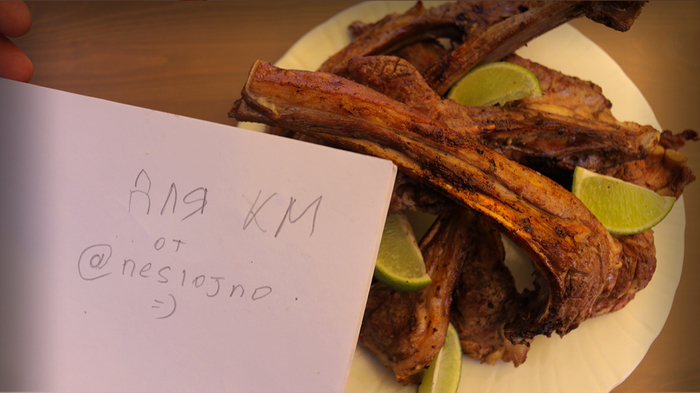 Для КМ
от
@neslojno
=)